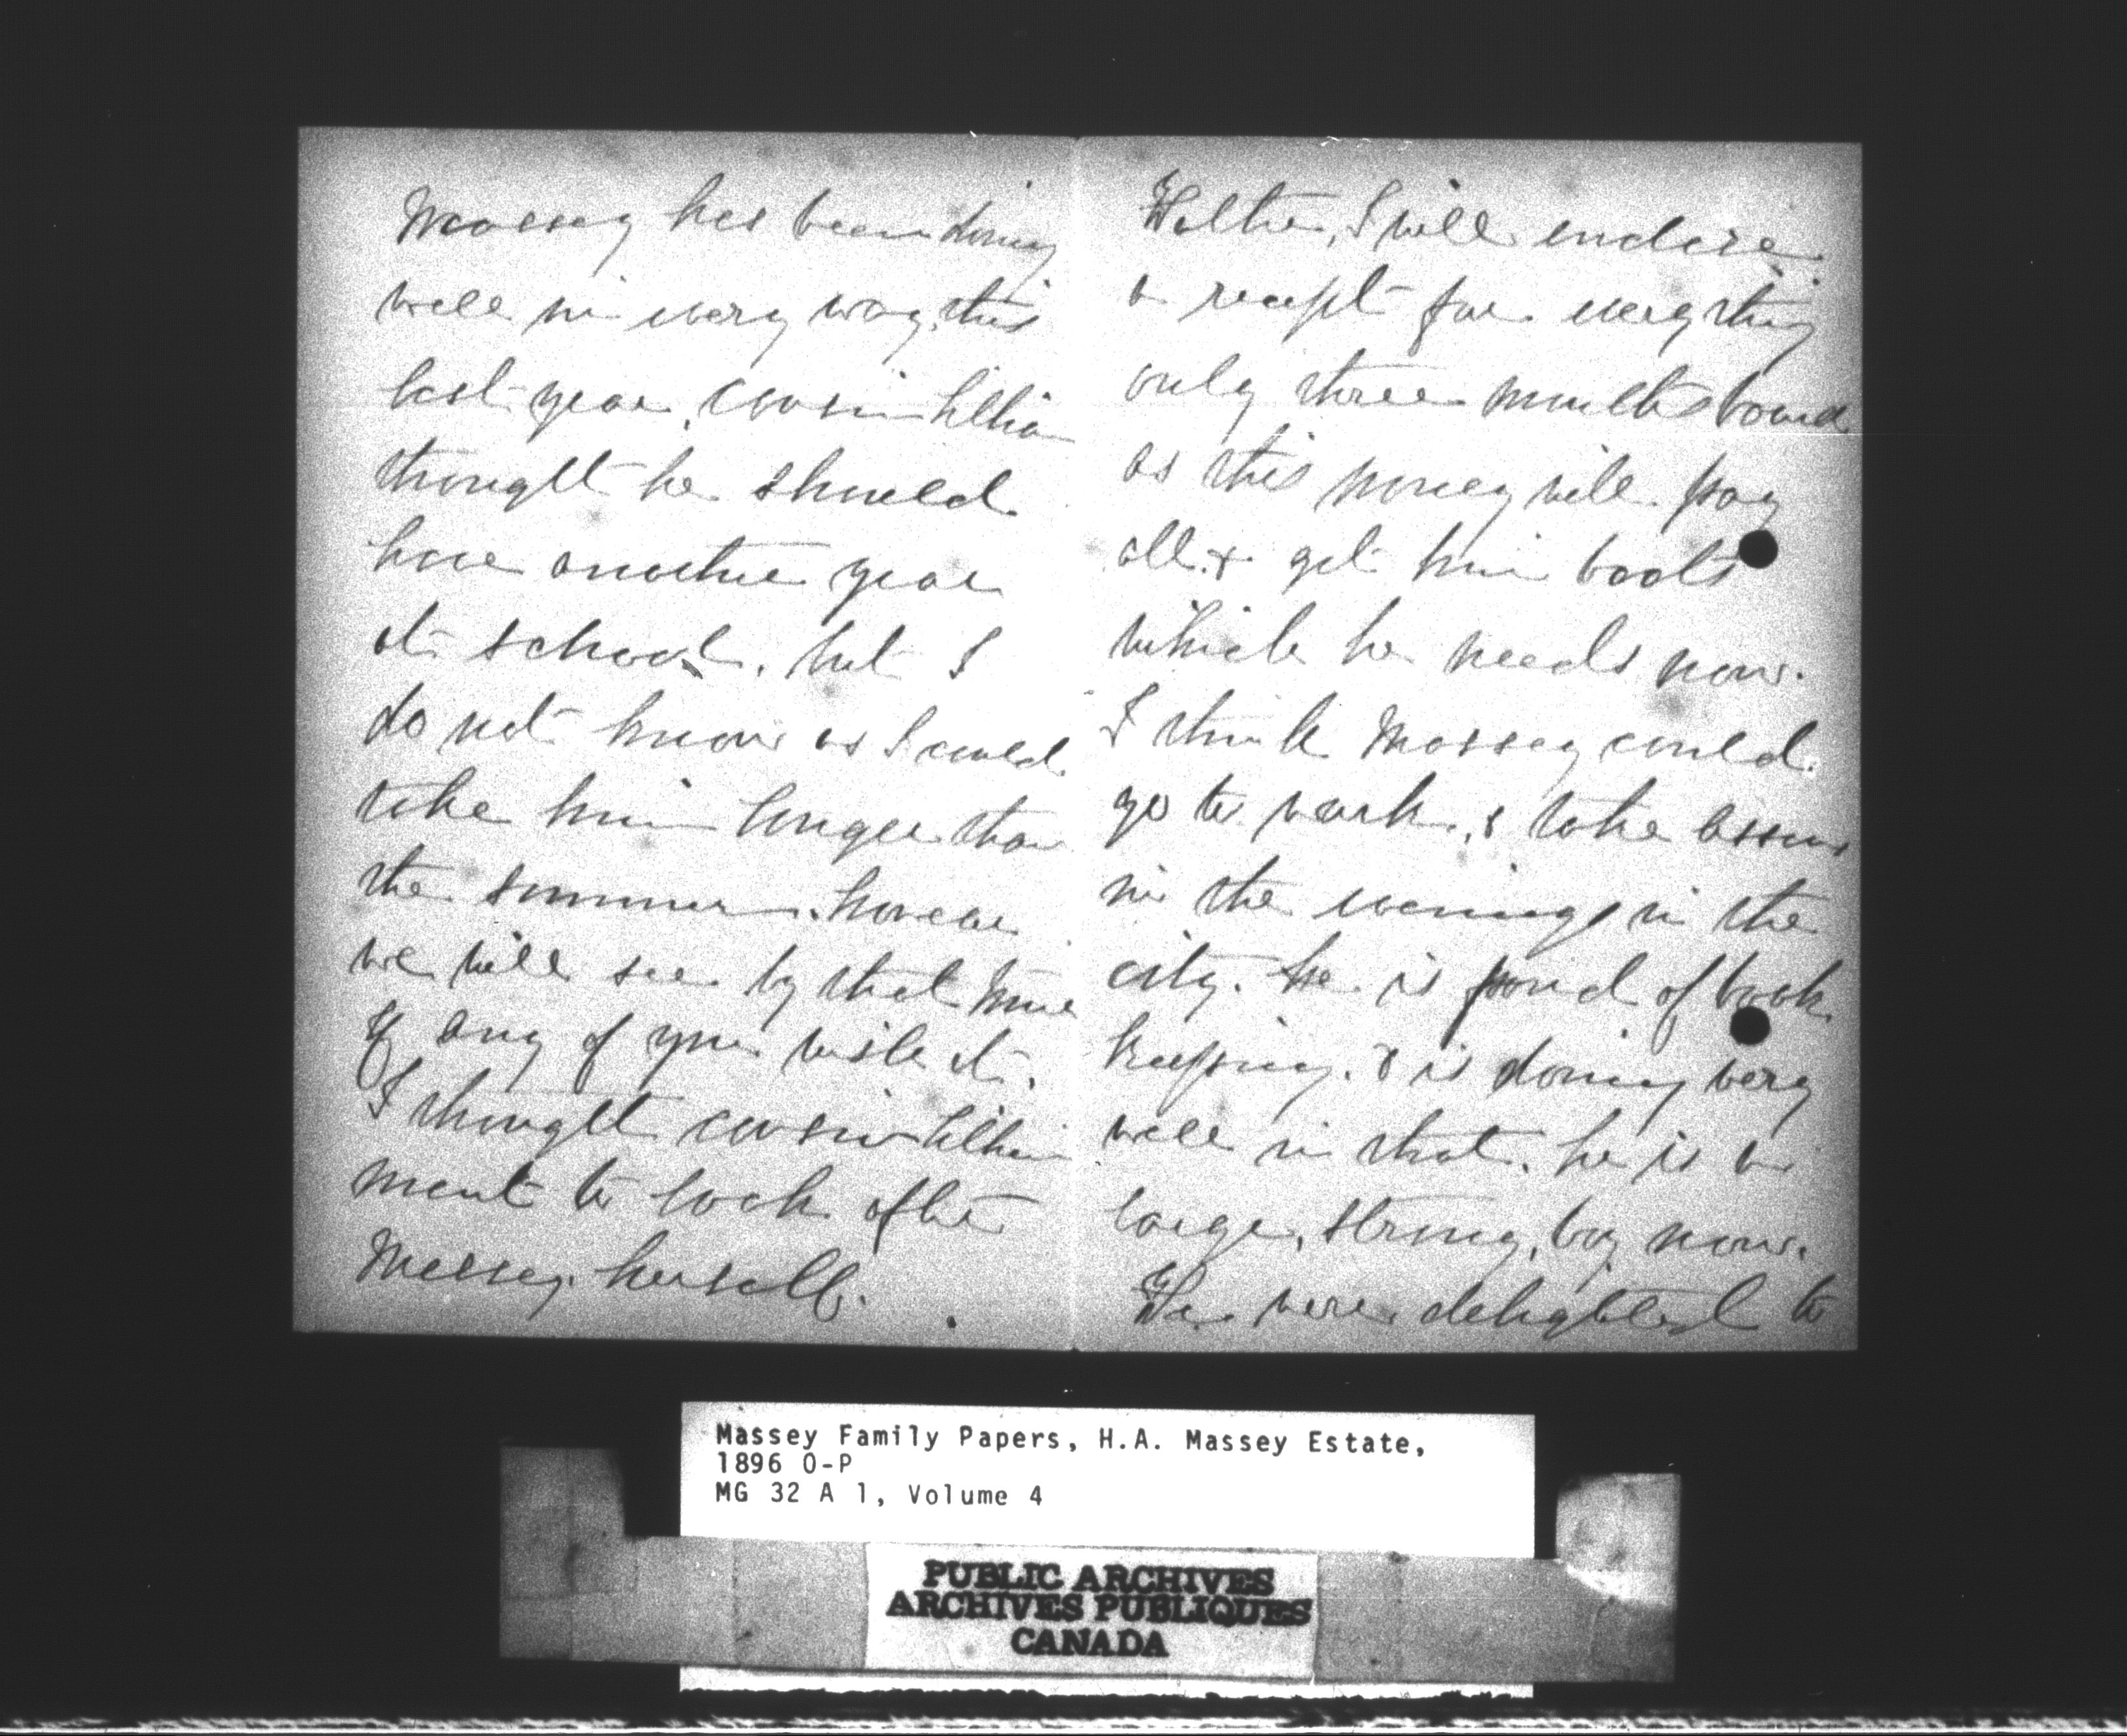 Massey has been doing
well in every way, this
last year, cousin Lillian
thought he should
have another year
at school, but I
do not know as I could
take him longer than
the summer. however
we will see by that time
If any of you wish it.
I thought cousin Lillian
ment to look after
Massey herself.
Walter, I will enclose
a receipt for everything
only three months board
as this money will pay
all & get him boots
which he needs now.
I think Massey could
go to work, & take lessons
in the evenings in the
city. he is fond of book
keeping. & is doing very
well in that. he is a
large, strong, boy now.
We were delighted to
Massey Family Papers, H.A. Massey Estate,
1896 O-P
MG 32 A 1, Volume 4
PUBLIC ARCHIVES
ARCHIVES PUBLIQUES
CANADA